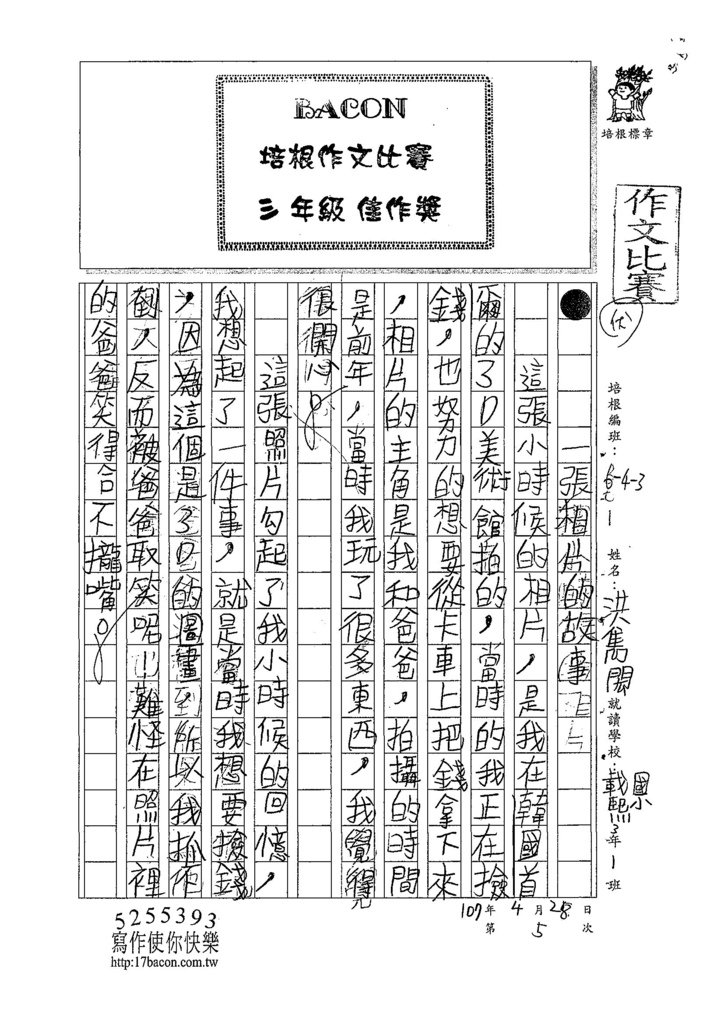 BACON
培根作文比賽
三年級佳作獎
培根標章
作文比賽
優
培根編班：
6-4-3
姓名：洪雋閎
就讀學校：載熙國小 3年1班
107年4月28日
第5次
一張相片的故事
這張小時候的相片，是我在韓國首
爾的3D美術館拍的，當時的我正在撿
錢，也努力的想要從卡車上把錢拿下來
，相片的主角是我和爸爸，拍攝的時間
是前年，當時我玩了很多東西，我覺得
很開心。
這張照片勾起了我小時候的回憶，
我想起了一件事，就是當時我想要撿錢
，因為這個是3D的圖畫，所以我抓不
到，反而被爸爸取笑呢！難怪在照片裡
的爸爸笑得合不攏嘴。
5255393
寫作使你快樂
http:17bacon.com.tw